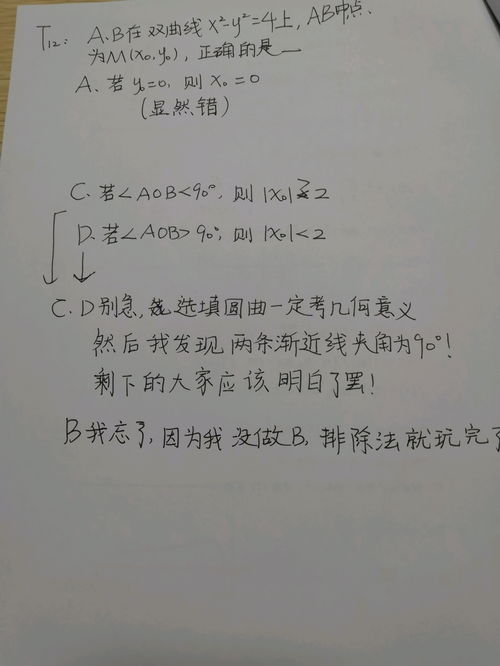 T12: A、B在双曲线 x²-y²=4上, AB中点、
为M(x₀,y₀), 正确的是__
A、若 y₀=0, 则 x₀=0
(显然错)
C. 若∠AOB<90°, 则 |x₀|≥2
D. 若∠AOB>90°, 则 |x₀|<2
C. D别急, 选填圆曲一定考几何意义
然后我发现两条渐近线夹角为90°!
剩下的大家应该明白了罢!
B我忘了, 因为我没做B, 排除法就玩完了